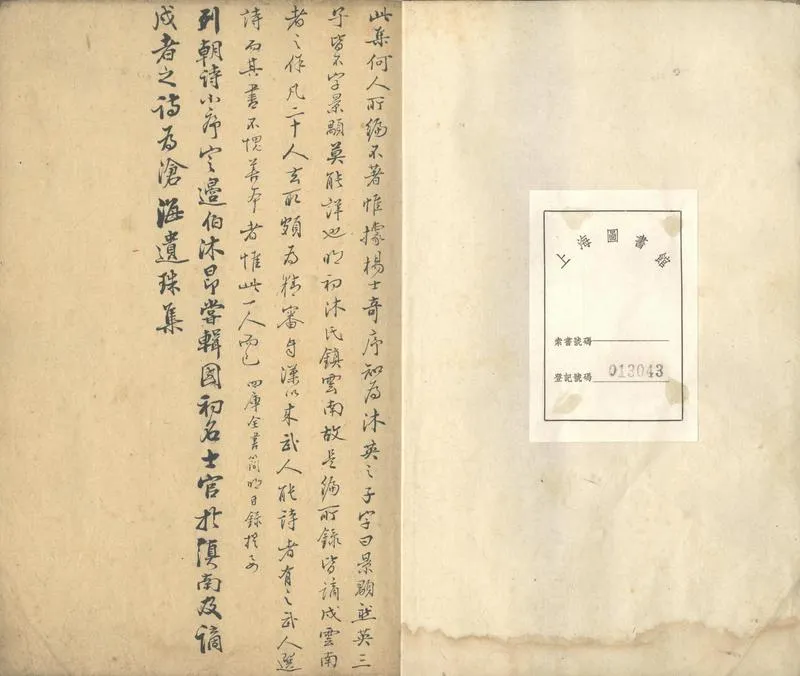 上海圖書館
索書號碼
登記號碼 013043
此集何人所編不著惟據楊士奇序知為沐英之子字曰景顒然英三
子皆不字景顒莫能詳也明初沐氏鎮雲南故是編所錄皆謫戍雲南
者之作凡二十人去取頗為精審自漢以來武人能詩者有之武人選
詩而其書不愧善本者惟此一人而已 四庫全書簡明目錄提要
列朝詩小序定邉伯沐昂嘗輯國初名士官於滇南及謫
戍者之詩為滄海遺珠集